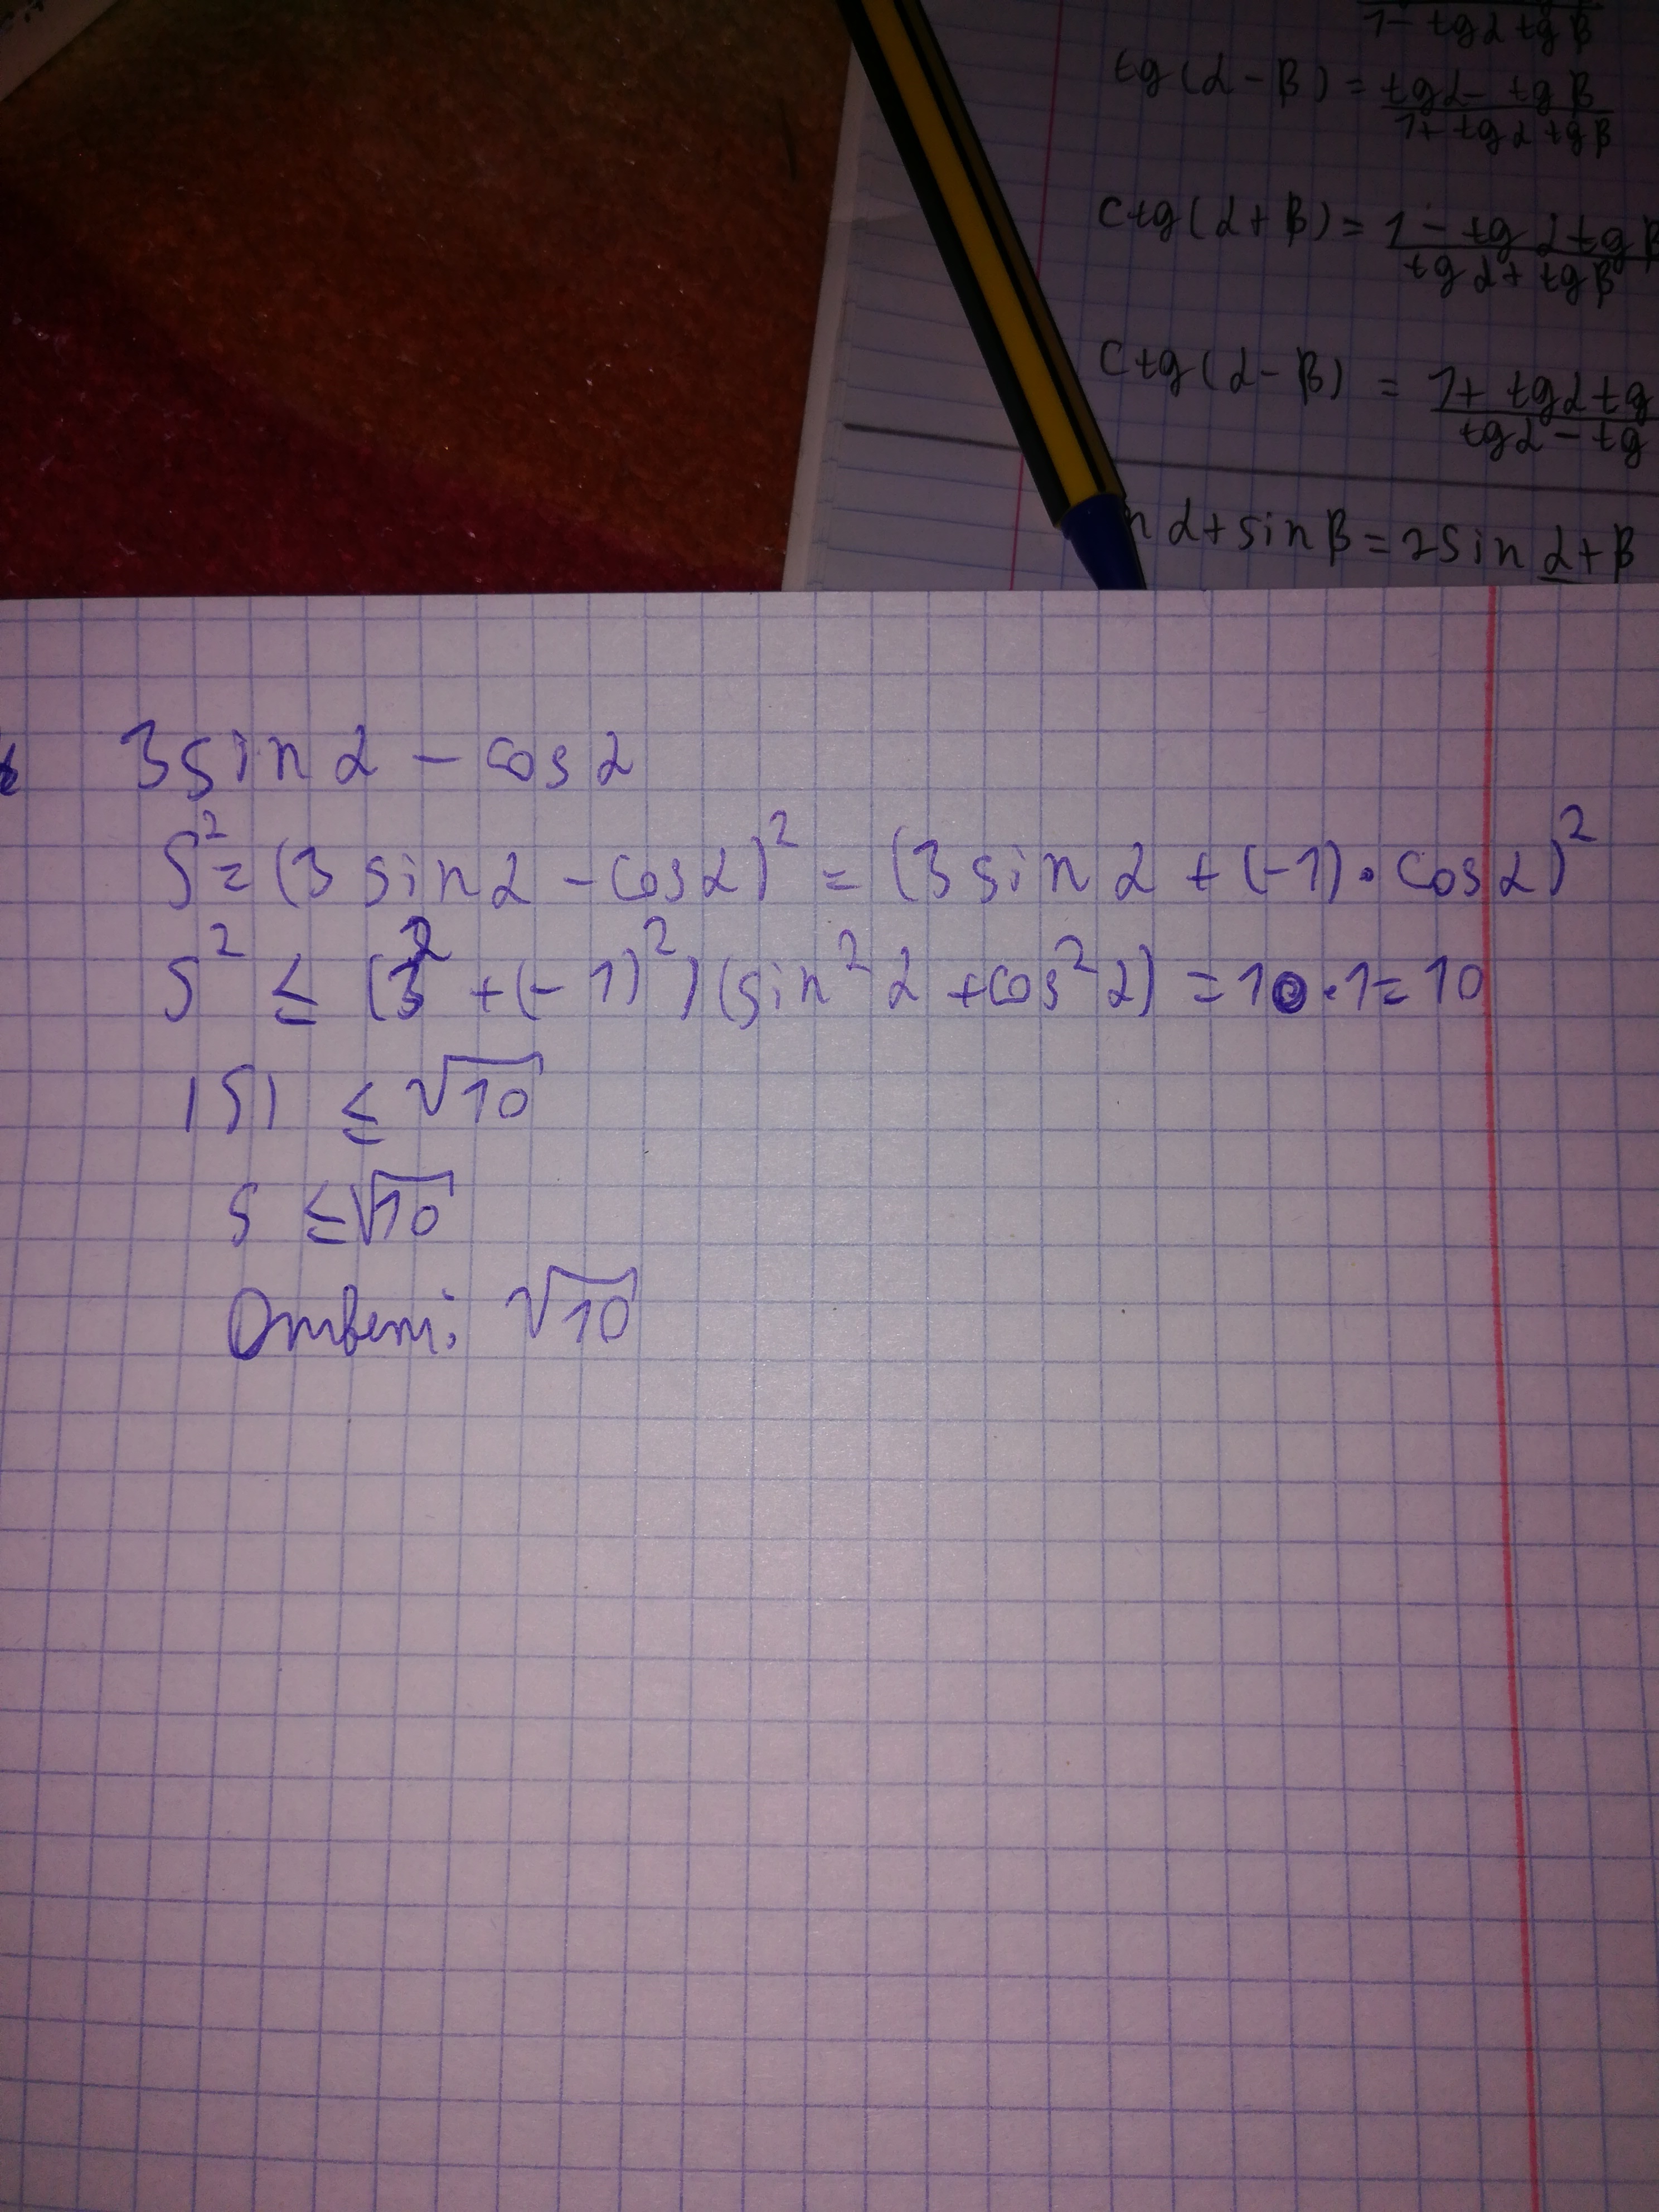 1 - tgα tgβ
tg(α - β) = tgα - tgβ
1 + tgα tgβ
ctg(α + β) = 1 - tgα tgβ
tgα + tgβ
ctg(α - β) = 1 + tgα tg
tgα - tg
n α + sin β = 2 sin α + β
3 sin α - cos α
S² = (3 sin α - cos α)² = (3 sin α + (-1) · cos α)²
S² ≤ (3² + (-1)²)(sin² α + cos² α) = 10 · 1 = 10
|S| ≤ √10
S ≤ √10
Ответ: √10